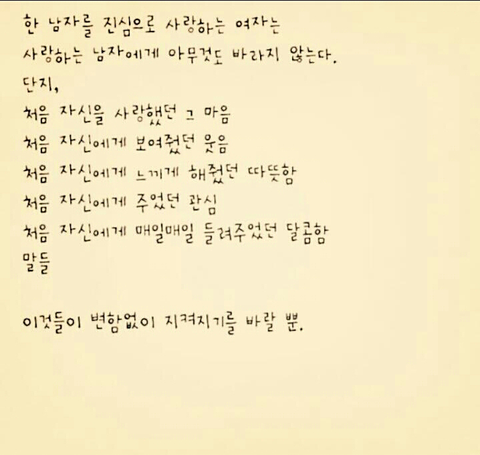 한 남자를 진심으로 사랑하는 여자는
사랑하는 남자에게 아무것도 바라지 않는다.
단지,
처음 자신을 사랑했던 그 마음
처음 자신에게 보여줬던 웃음
처음 자신에게 느끼게 해줬던 따뜻함
처음 자신에게 주었던 관심
처음 자신에게 매일매일 들려주었던 달콤함
말들
이것들이 변함없이 지켜지기를 바랄 뿐.